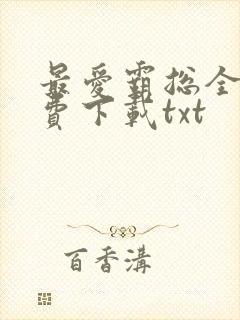 最愛霸總全
費下載txt
百香溝